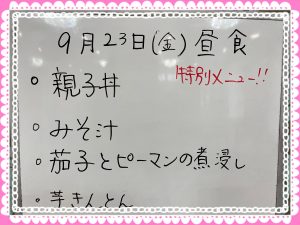 9月23日(金)昼食
特別メニュー!!
○ 親子丼
○ みそ汁
○ 茄子とピーマンの煮浸し
○ 芋きんとん